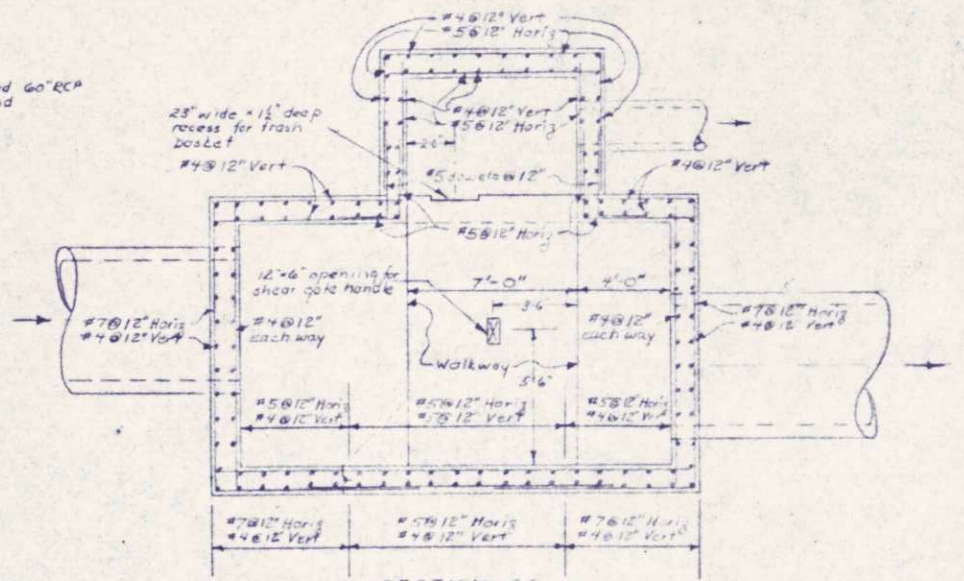 #4@12" Vert
#5@12" Horiz
60" RCP
23" wide × 1½" deep
recess for trash
basket
#4@12" Vert
#5@12" Horiz
2'-0"
#4@12" Vert
#4@12" Vert
#5 dowels@12"
#5@12" Horiz
12"×6" opening for
shear gate handle
7'-0"
4'-0"
3'-6"
#7@12" Horiz
#4@12" Vert
#4@12"
each way
#4@12"
each way
#7@12" Horiz
#4@12" Vert
Walkway
5'-6"
#5@12" Horiz
#4@12" Vert
#5@12" Horiz
#5@12" Vert
#5@12" Horiz
#4@12" Vert
#7@12" Horiz
#4@12" Vert
#5@12" Horiz
#4@12" Vert
#7@12" Horiz
#4@12" Vert